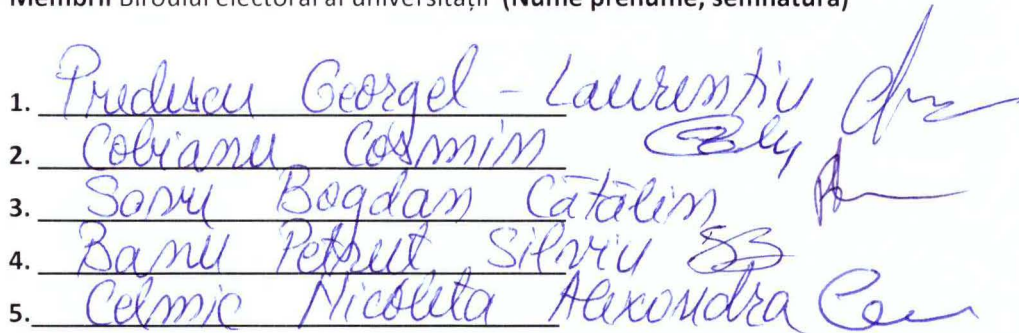 Membrii Biroului electoral al universității (Nume prenume, semnătură)
1. Predescu Georgel - Laurențiu
2. Cobianu Cosmin
3. Sonru Bogdan Cătălin
4. Banu Petruț Silviu
5. Celmic Nicoleta Alexandra